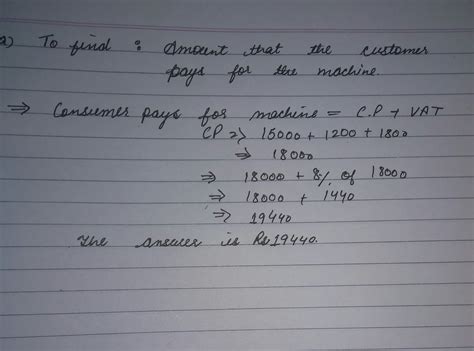 a) To find : Amount that the customer
pays for the machine.
⇒ Consumer pays for machine = C.P + VAT
CP ⇒ 15000 + 1200 + 1800
⇒ 18000
⇒ 18000 + 8% of 18000
⇒ 18000 + 1440
⇒ 19440
The answer is Rs 19440.